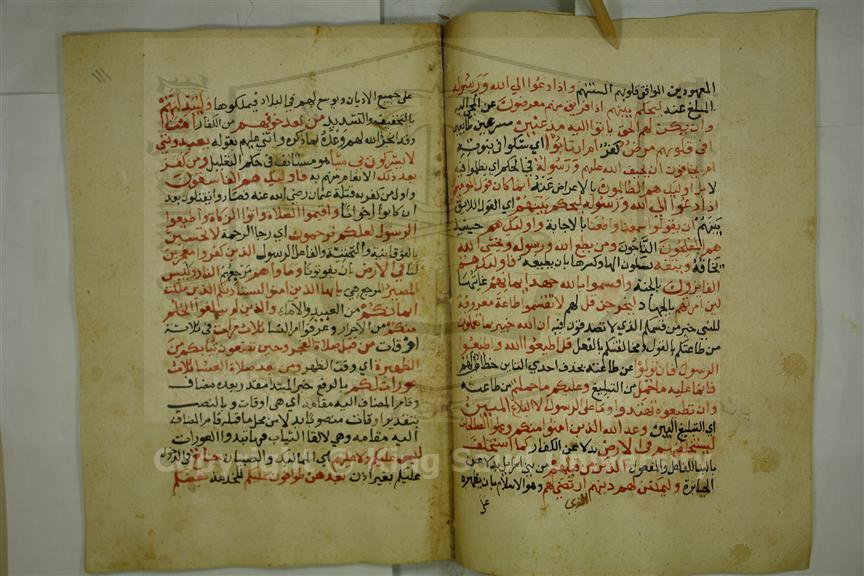 المعهودين الموافق قلوبهم السنتهم واذا دعوا الى الله ورسوله
المبلغ عنه ليحكم بينهم اذا فريق منهم معرضون عن المجي اليه
وان يكن لهم الحق ياتوا اليه مذعنين مسرعين طايعين
افي قلوبهم مرض كفر ام ارتابوا اي شكوا في نبوته
ام يخافون ان يحيف الله عليهم ورسوله في الحكم اي يظلموا فيه
لا بل اوليك هم الظالمون بالاعراض عنه انما كان قول المومنين
اذا دعوا الى الله ورسوله ليحكم بينهم اي القول اللايق
بهم ان يقولوا سمعنا واطعنا بالاجابة واوليك هم حينيذ
هم المفلحون الناجون ومن يطع الله ورسوله ويخشى الله
يخافه ويتقه بسكون الها وكسرها بان يطيعه فاوليك هم
الفايزون بالجنة واقسموا بالله جهد ايمانهم غايتها
لين امرتهم بالجهاد ليخرجن قل لهم لا تقسموا طاعة معروفة
للنبي خير من قسمكم الذي لا تصدقون فيه ان الله خبير بما تعملون
من طاعتكم بالقول ومخالفتكم بالفعل قل اطيعوا الله واطيعوا
الرسول فان تولوا عن طاعته بحذف احدى التاين خطاب لهم
فانما عليه ما حمل من التبليغ وعليكم ما حملتم من طاعته
وان تطيعوه تهتدوا وما على الرسول الا البلاغ المبين
اي التبليغ البين وعد الله الذين امنوا منكم وعملوا الصالحات
ليستخلفنهم في الارض بدلا عن الكفار كما استخلف
بالبنا للفاعل والمفعول الذين من قبلهم من بني اسرايل بدلا عن
الجبابرة وليمكنن لهم دينهم الذي ارتضى لهم وهو الاسلام بان يظهره
على
١١١
على جميع الاديان ويوسع لهم في البلاد فيملكوها وليبدلنهم
بالتخفيف والتشديد من بعد خوفهم من الكفار امنا
وقد انجز الله لهم وعده بما ذكره واثنى عليهم بقوله يعبدونني
لا يشركون بي شيا هو مستانف في حكم التعليل ومن كفر
بعد ذلك الانعام منهم به فاوليك هم الفاسقون
واول من كفر به قتلة عثمان رضي الله عنه فصاروا يقتتلون بعد
ان كانوا اخوانا واقيموا الصلاة واتوا الزكاة واطيعوا
الرسول لعلكم ترحمون اي رجا الرحمة لا تحسبن
بالفوقانية والتحتية والفاعل الرسول الذين كفروا معجزين
لنا في الارض بان يفوتونا وماواهم مرجعهم النار ولبيس
المصير المرجع هي يايها الذين امنوا ليستاذنكم الذين ملكت
ايمانكم من العبيد والاماء والذين لم يبلغوا الحلم
منكم من الاحرار وعرفوا امر النسا ثلاث مرات في ثلاثة
اوقات من قبل صلاة الفجر وحين تضعون ثيابكم من
الظهيرة اي وقت الظهر ومن بعد صلاة العشا ثلاث
عورات لكم بالرفع خبر المبتدا مقدر بعده مضاف
وقام المضاف اليه مقامه اي هي اوقات وبالنصب
بتقدير اوقات منصوبا بدلا من محل ما قبله قام المضاف
اليه مقامه وهي لالقا الثياب فيها تبدوا العورات
ليس عليكم ولا عليهم اي المماليك والصبيان جناح في الدخول
عليكم بغير اذن بعدهن هم طوافون عليكم للخدمة بعضكم